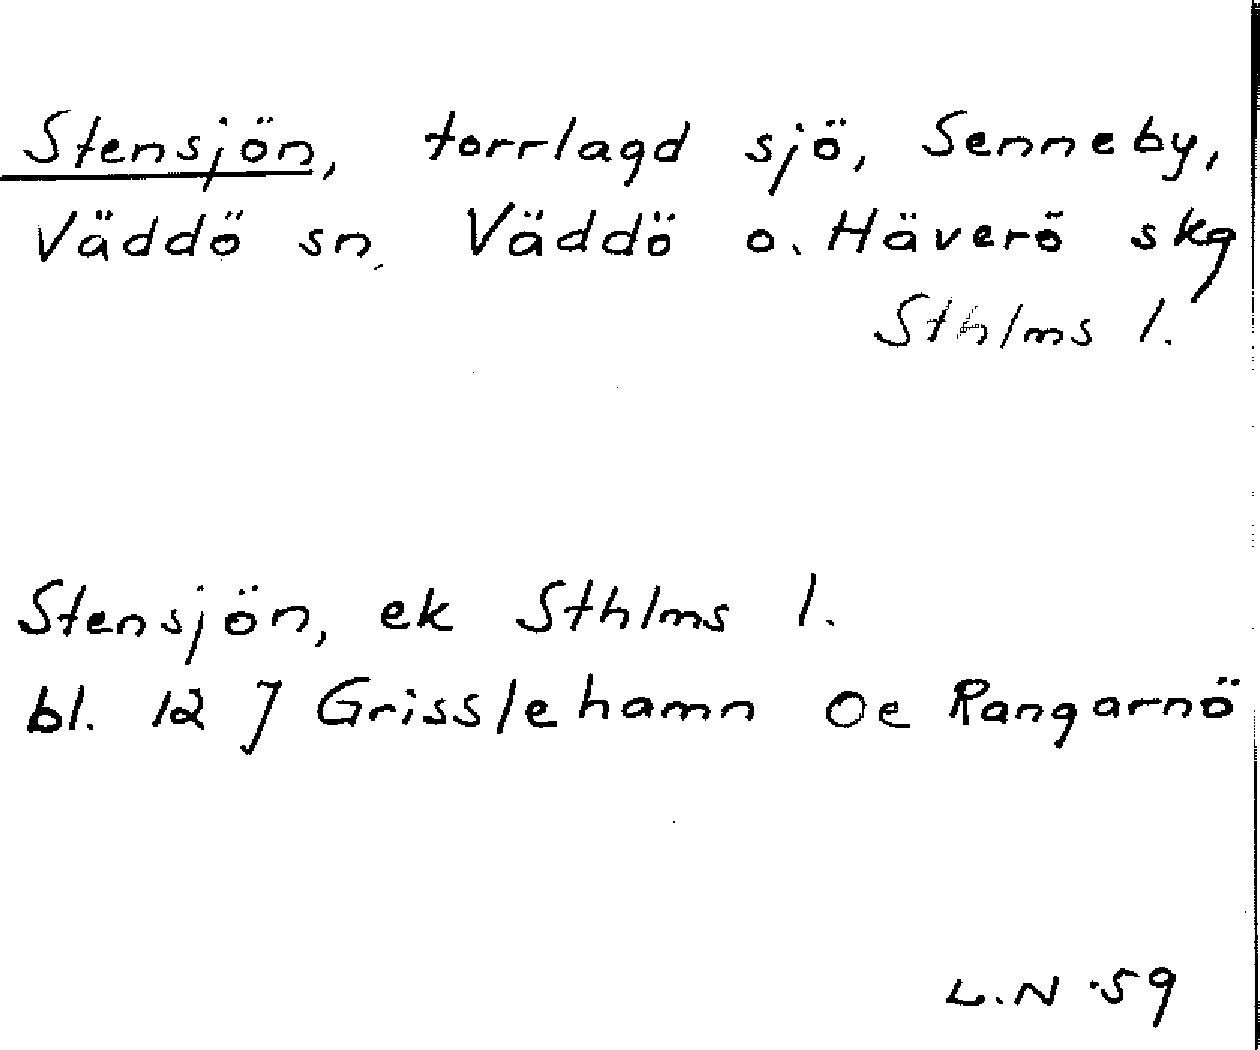 Stensjön, torrlagd sjö, Senneby,
Väddö sn. Väddö o. Häverö skg
Sthlms l.
Stensjön, ek Sthlms l.
bl. 12 J Grisslehamn Oe Rangarnö
L.N 59